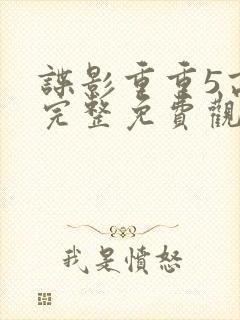 諜影重重5
完整免費觀
我是憤怒